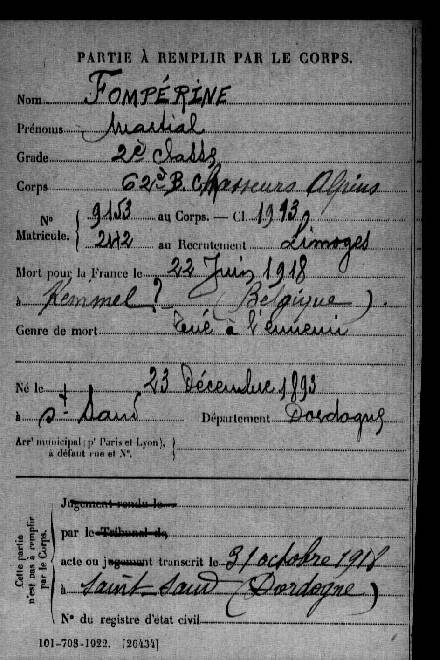 PARTIE À REMPLIR PAR LE CORPS.
Nom FOMPÉRINE
Prénoms Martial
Grade 2e classe
Corps 62e B. Chasseurs Alpins
N° Matricule. { 9153 au Corps. — Cl. 1913
242 au Recrutement Limoges
Mort pour la France le 22 Juin 1918
à Kemmel ? (Belgique).
Genre de mort Tué à l'ennemi
Né le 23 Décembre 1893
à St Saud Département Dordogne
Arrt municipal (pr Paris et Lyon),
à défaut rue et N°.
Cette partie n'est pas à remplir par le Corps.
Jugement rendu le
par le Tribunal de
acte ou jugement transcrit le 31 octobre 1918
à Saint-Saud (Dordogne)
N° du registre d'état civil
101-708-1922. [26434]